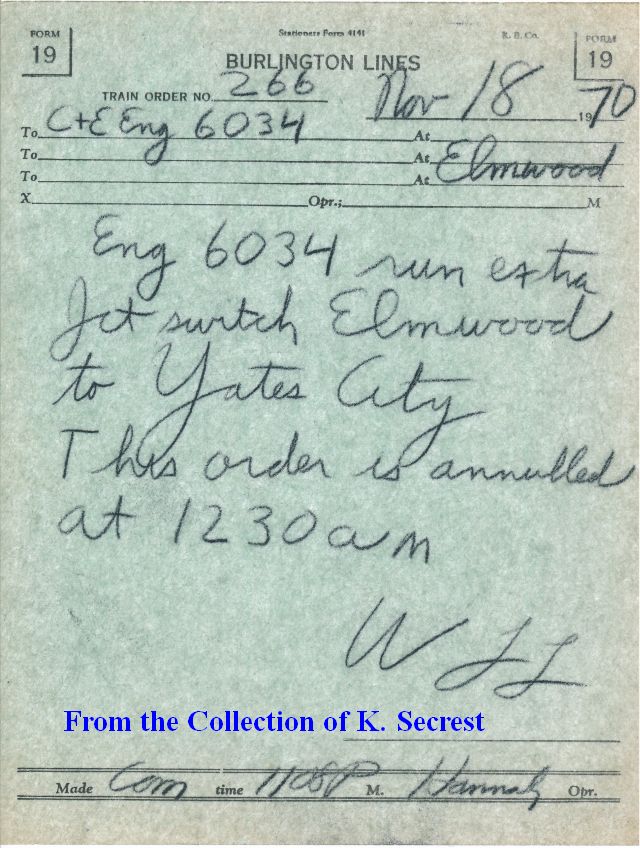 FORM 19
Stationers Form 4141
R. B. Co.
FORM 19
BURLINGTON LINES
TRAIN ORDER NO. 266
Nov 18 1970
To C+E Eng 6034 At
To At Elmwood
To At
X Opr.; M
Eng 6034 run extra
Jct switch Elmwood
to Yates City
This order is annulled
at 1230 am
From the Collection of K. Secrest
Made Com time 1108P M. Hannah Opr.